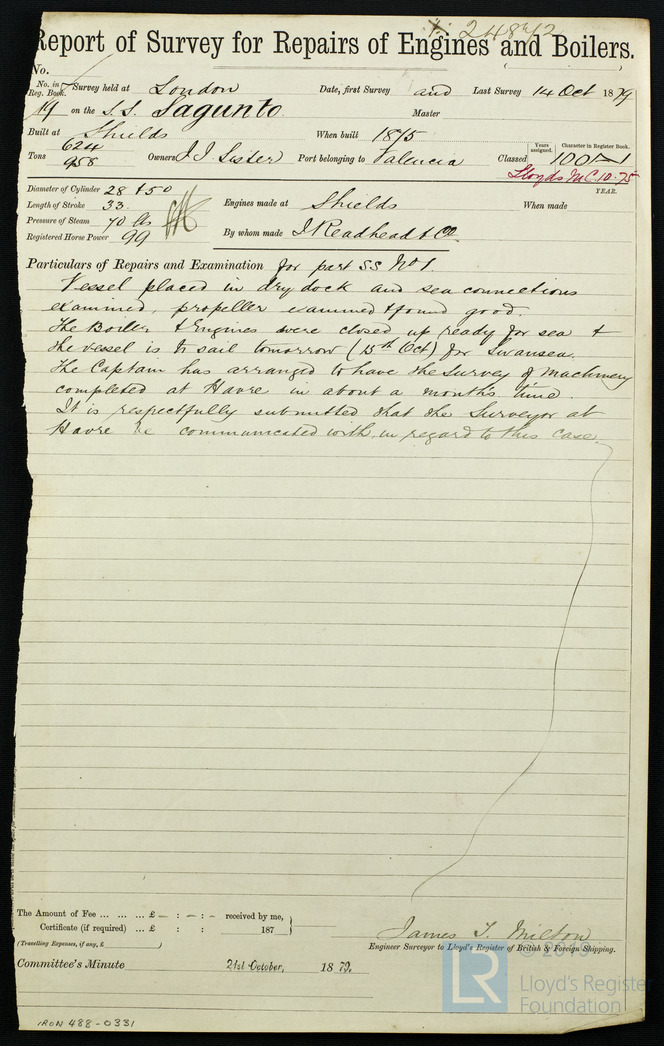 24872
Report of Survey for Repairs of Engines and Boilers.
No.
No. in Reg. Book. Survey held at London Date, first Survey and Last Survey 14 Oct 1879
19 on the S.S. Sagunto Master
Built at Shields When built 1875
Tons 624 958 Owners J. J. Sister Port belonging to Valencia Classed Years assigned. Character in Register Book. 100A1
Lloyds M.C. 10.75
YEAR.
Diameter of Cylinder 28 & 50
Length of Stroke 33 Engines made at Shields When made
Pressure of Steam 70 lbs
Registered Horse Power 99 By whom made J Readhead & Co
Particulars of Repairs and Examination for part SS No 1.
Vessel placed in dry dock and sea connections
examined, propeller examined & found good.
The Boiler & Engines were closed up ready for sea &
the vessel is to sail tomorrow (15th Oct) for Swansea.
The Captain has arranged to have the survey of Machinery
completed at Havre in about a month's time.
It is respectfully submitted that the Surveyor at
Havre be communicated with, in regard to this case.
The Amount of Fee ... ... ... £ - : - : - received by me,
Certificate (if required) ... £ : : 187
(Travelling Expenses, if any, £ )
James T. Milton
Engineer Surveyor to Lloyd's Register of British & Foreign Shipping.
Committee's Minute 21st October, 1879.
© 2019
LR Lloyd's Register Foundation
IRON 488-0331